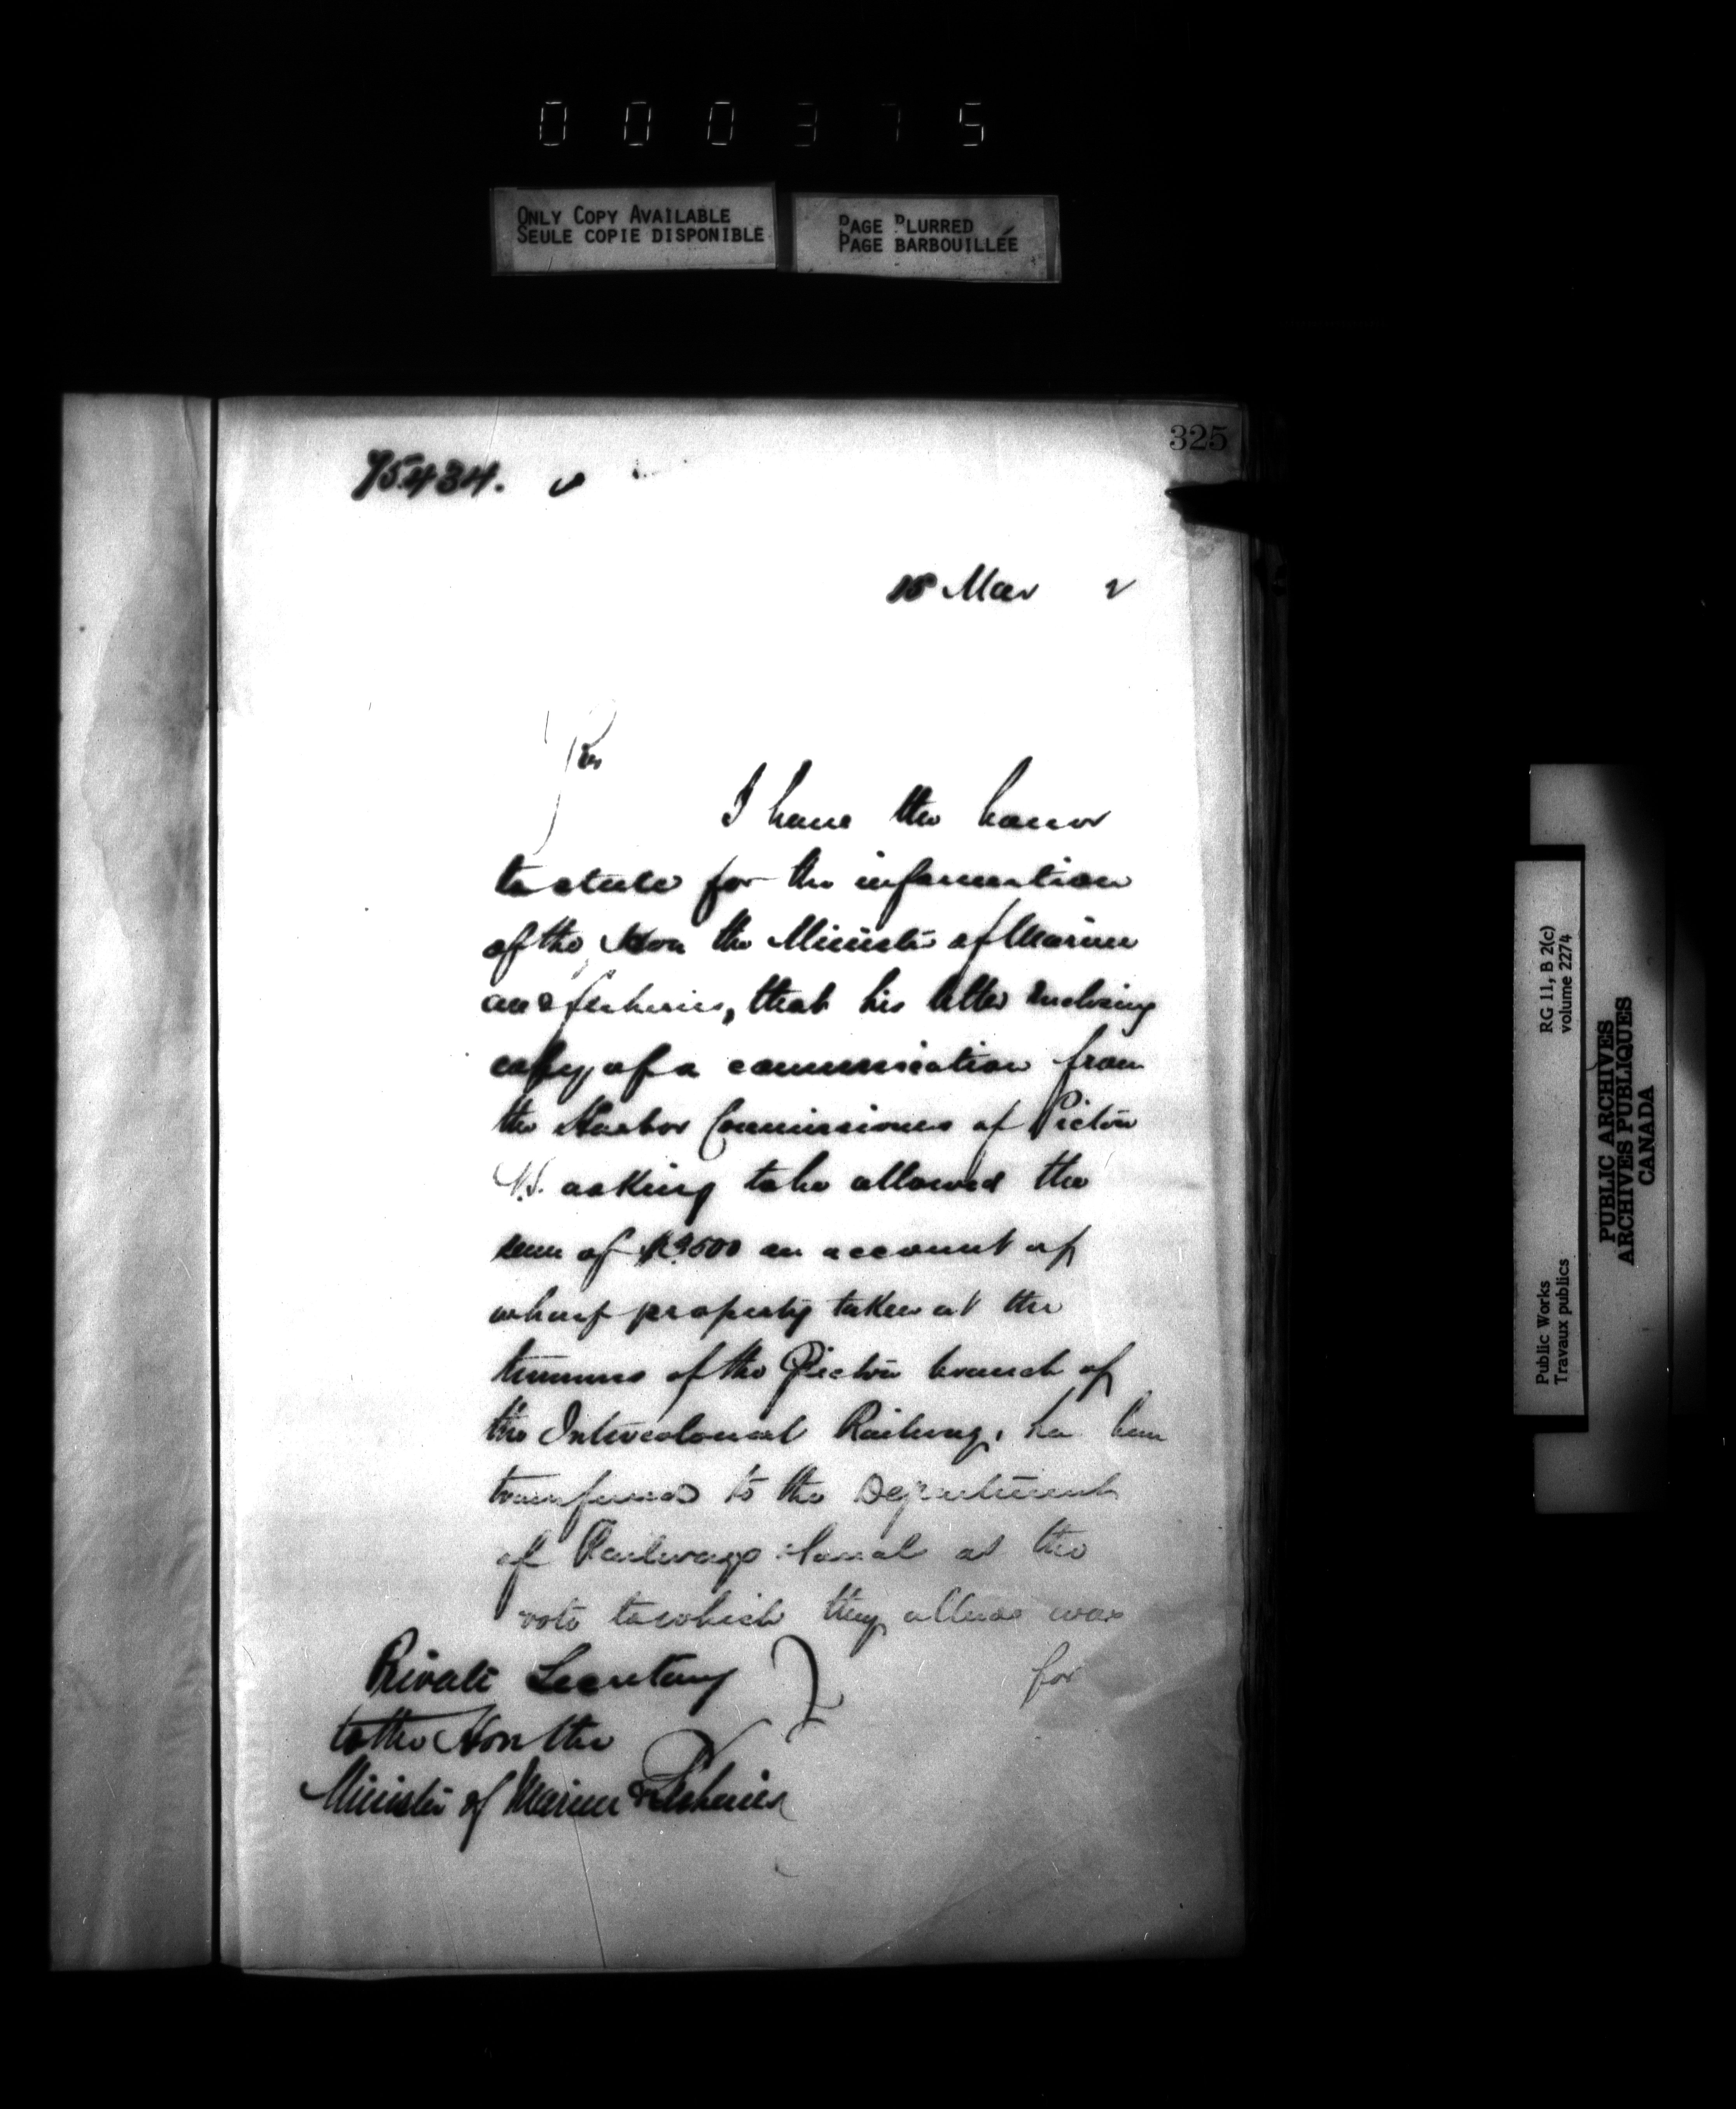 000375
ONLY COPY AVAILABLE
SEULE COPIE DISPONIBLE
PAGE BLURRED
PAGE BARBOUILLÉE
325
75434.
15 Mar 2
Sir
I have the honor
to state for the information
of the Hon the Minister of Marine
and fisheries, that his letter enclosing
copy of a communication from
the Harbor Commissioners of Pictou
N.S. asking to be allowed the
sum of $9500 on account of
wharf property taken at the
terminus of the Pictou branch of
the Intercolonial Railway, ha been
transferred to the Department
of Railways Canal as the
vote to which they allude was
for
Private Secretary
to the Hon the
Minister of Marine & Fisheries
Public Works
Travaux publics
RG 11, B 2(c)
volume 2274
PUBLIC ARCHIVES
ARCHIVES PUBLIQUES
CANADA